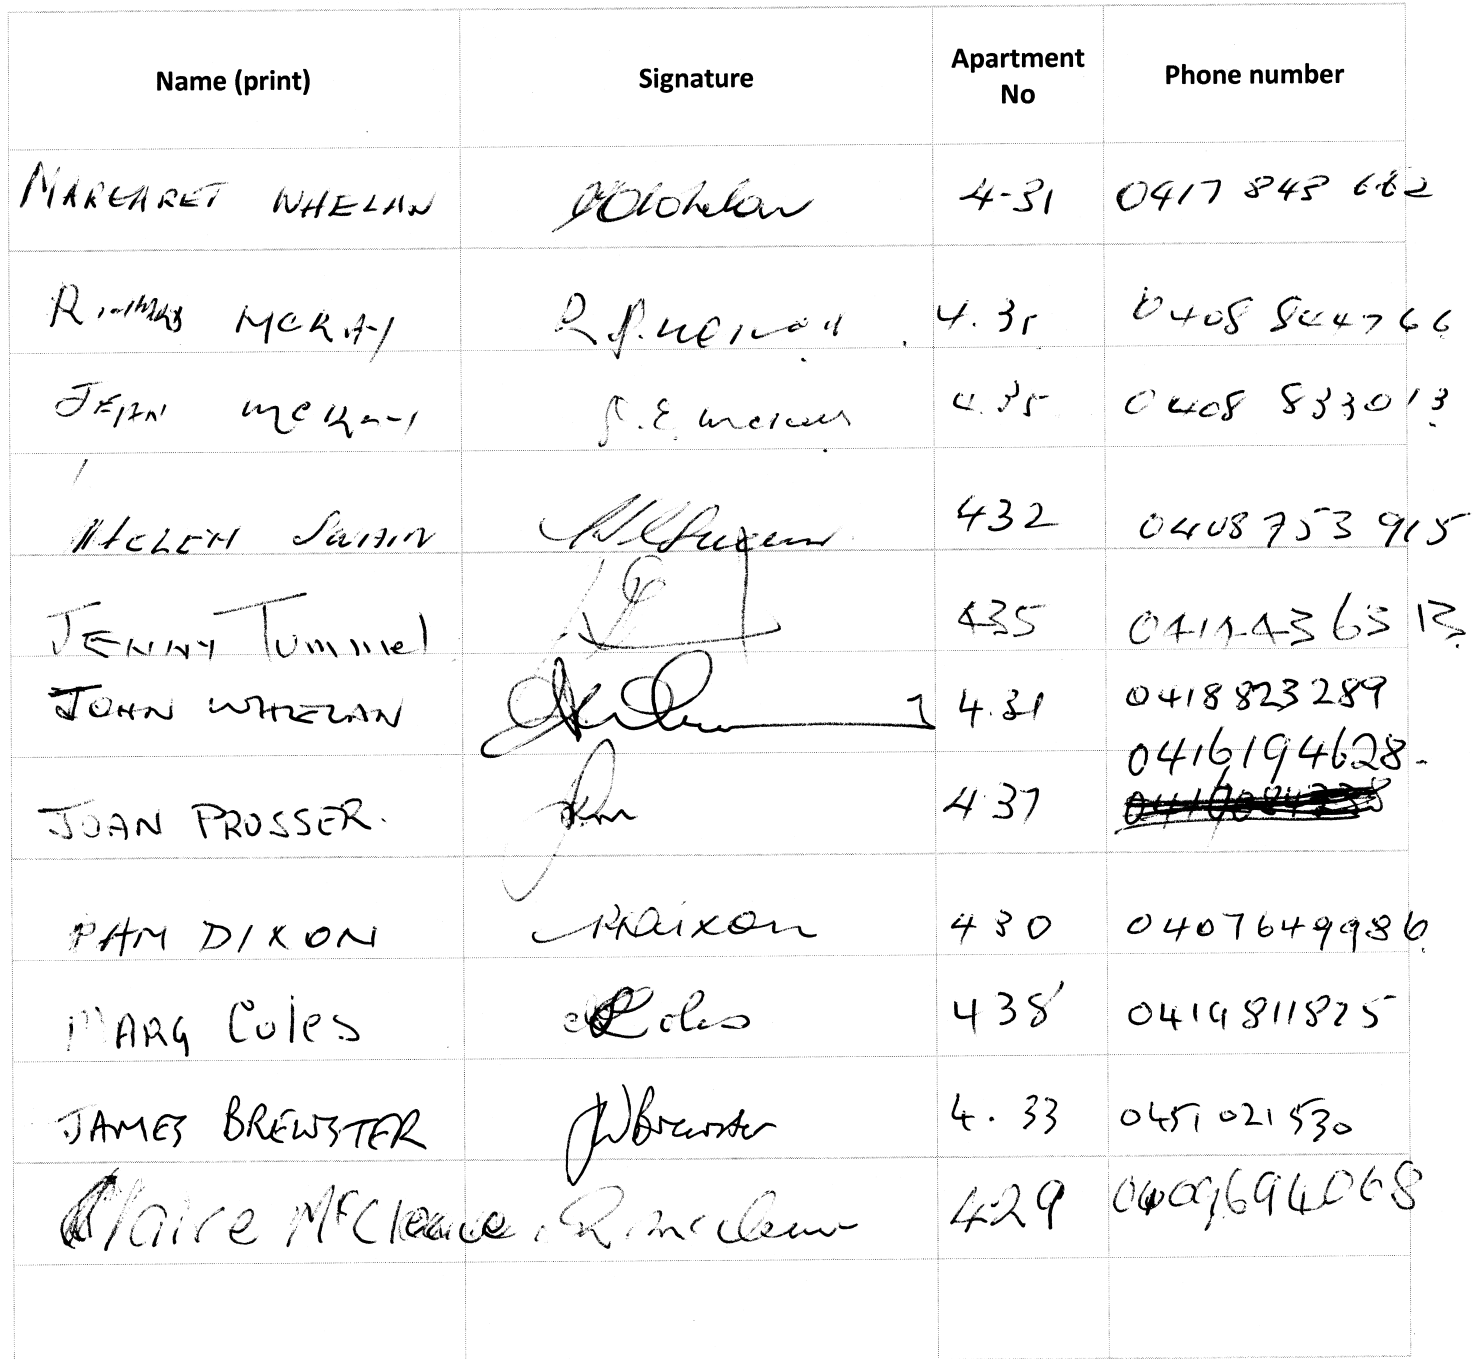 Name (print) Signature Apartment No Phone number
MARGARET WHELAN 4-31 0417 843 662
MCKAY 4.35 0408 844766
JEAN MCKAY S.E. 4.35 0408 833013
HELEN SWAIN 432 0408 753 915
JENNY Tummel 435 0414436513
JOHN WHELAN 4.31 0418823289
0416194628
JOAN PROSSER. 437
PAM DIXON PDixon 430 0407649986
MARG Coles Coles 438 0419811825
JAMES BREWSTER JWBrewster 4.33 0451 021 530
Claire 429 0409694068